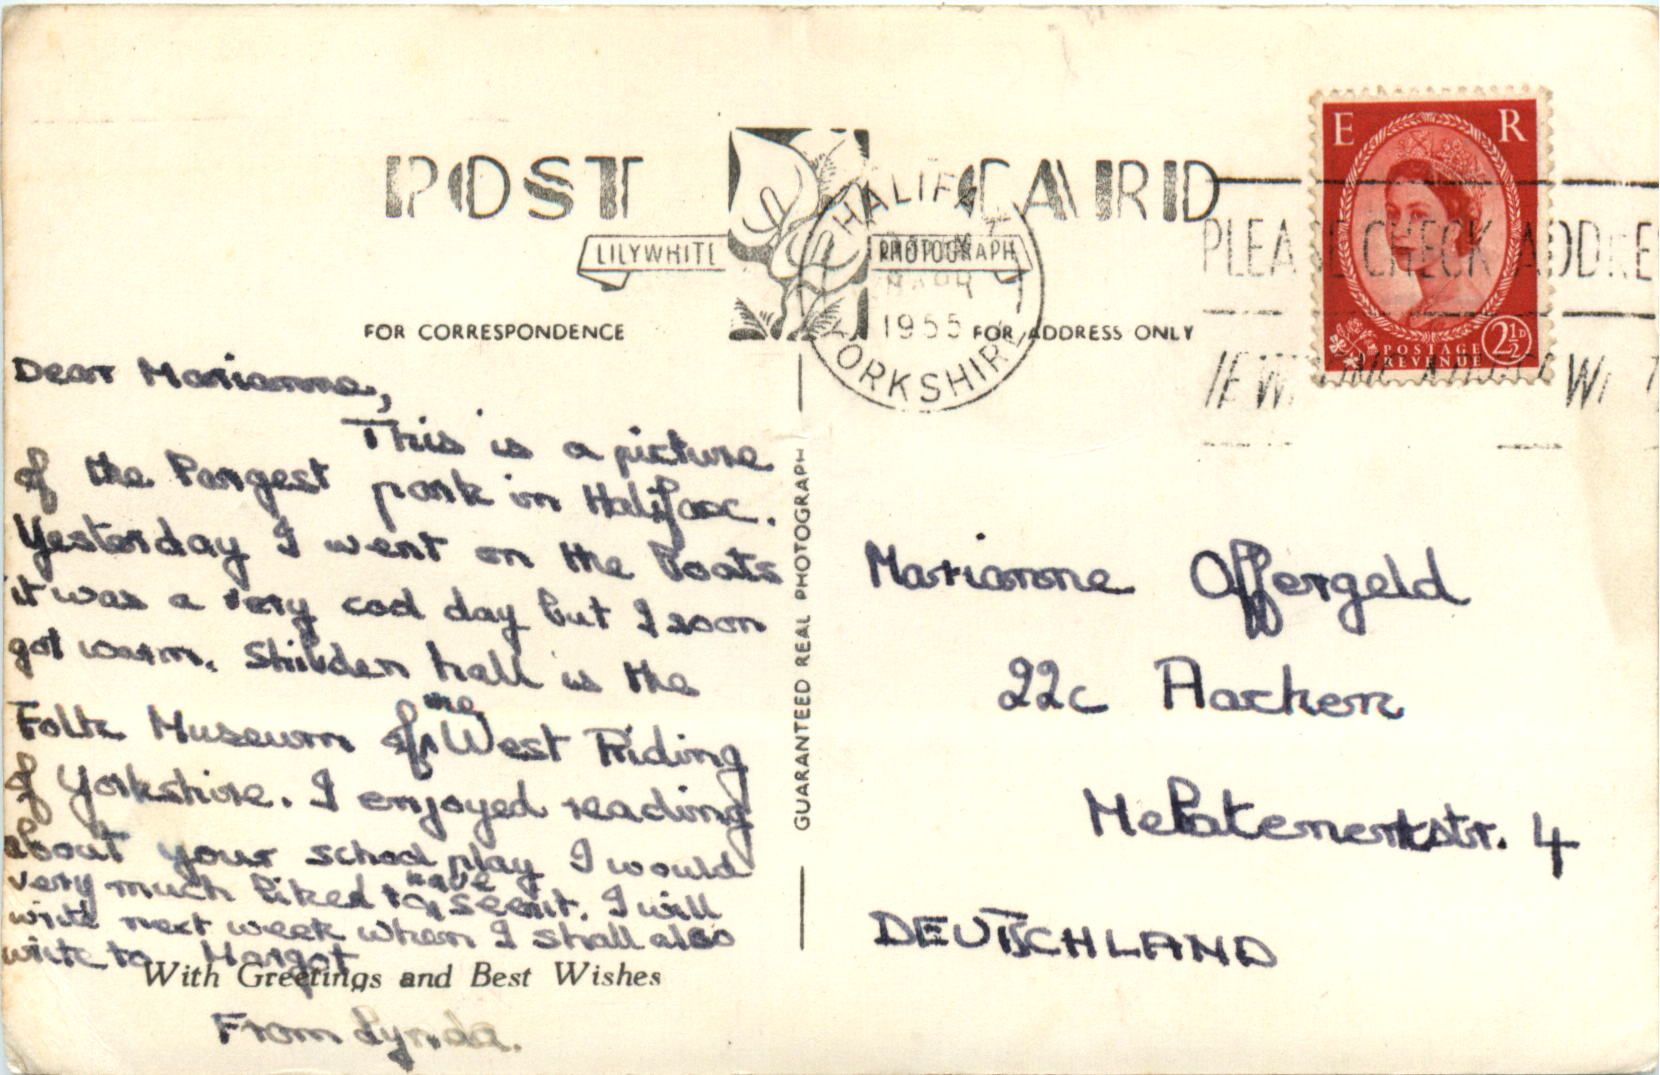 POST CARD
LILYWHITE PHOTOGRAPH
FOR CORRESPONDENCE
FOR ADDRESS ONLY
HALIFAX
APR
1955
YORKSHIRE
PLEASE CHECK ADDRE
IF W
E R
POSTAGE
REVENUE
2½D
Dear Marianne,
This is a picture
of the largest park in Halifax.
Yesterday I went on the boats
it was a very cod day but I soon
got warm. Shibden hall is the
Folk Museum of the West Riding
of Yorkshire. I enjoyed reading
about your school play I would
very much liked to have seen it. I will
write next week when I shall also
write to Margot
With Greetings and Best Wishes
From Lynda.
GUARANTEED REAL PHOTOGRAPH
Marianne Offergeld
22c Aachen
Melatenerstr. 4
DEUTSCHLAND